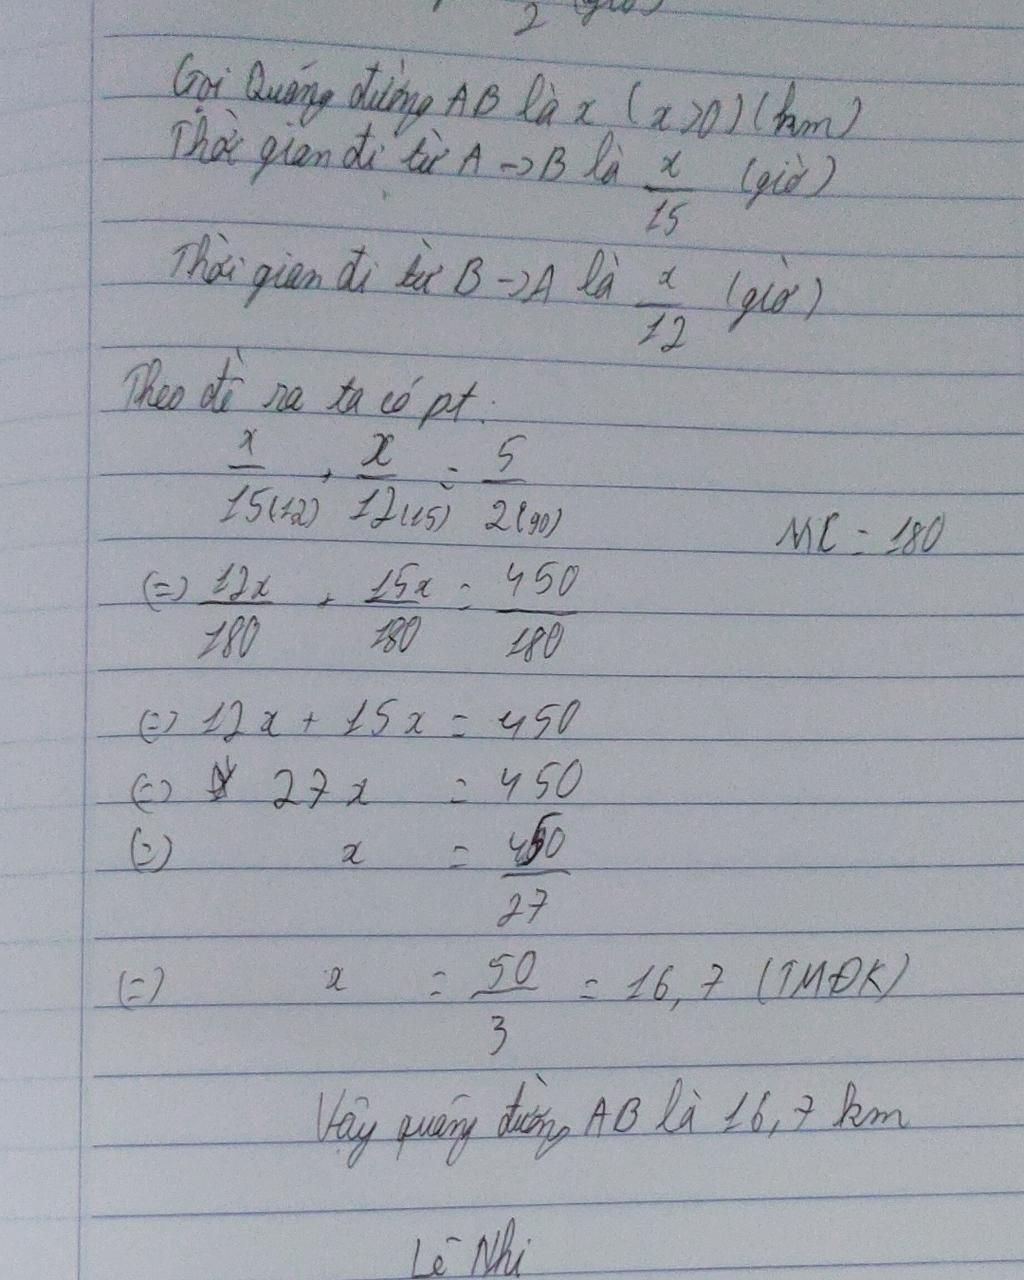 2 (giờ)
Gọi Quãng đường AB là x (x>0) (km)
Thời gian đi từ A -> B là x/15 (giờ)
Thời gian đi từ B -> A là x/12 (giờ)
Theo đề ra ta có pt:
x/15(12) + x/12(15) = 5/2(90)
MC = 180
(=) 12x/180 + 15x/180 = 450/180
(=) 12x + 15x = 450
(=) 27x = 450
(=) x = 450/27
(=) x = 50/3 = 16,7 (TMĐK)
Vậy quãng đường AB là 16,7 km
Lê Nhi